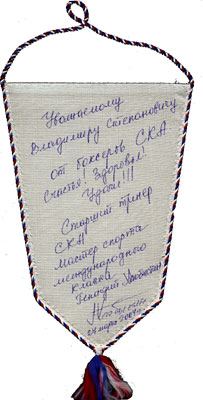 Уважаемому
Владимиру Степановичу
от боксеров СКА
Счастья! Здоровья!
Удачи!!!
Старший тренер
СКА
Мастер спорта
международного
класса
Геннадий